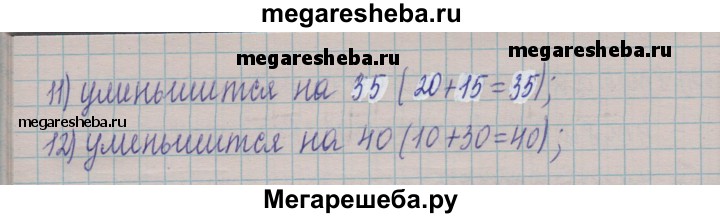 megaresheba.ru
megaresheba.ru
megaresheba.ru
11) уменьшится на 35 (20+15=35);
megaresheba.ru
12) уменьшится на 40 (10+30=40);
Мегарешеба.ру